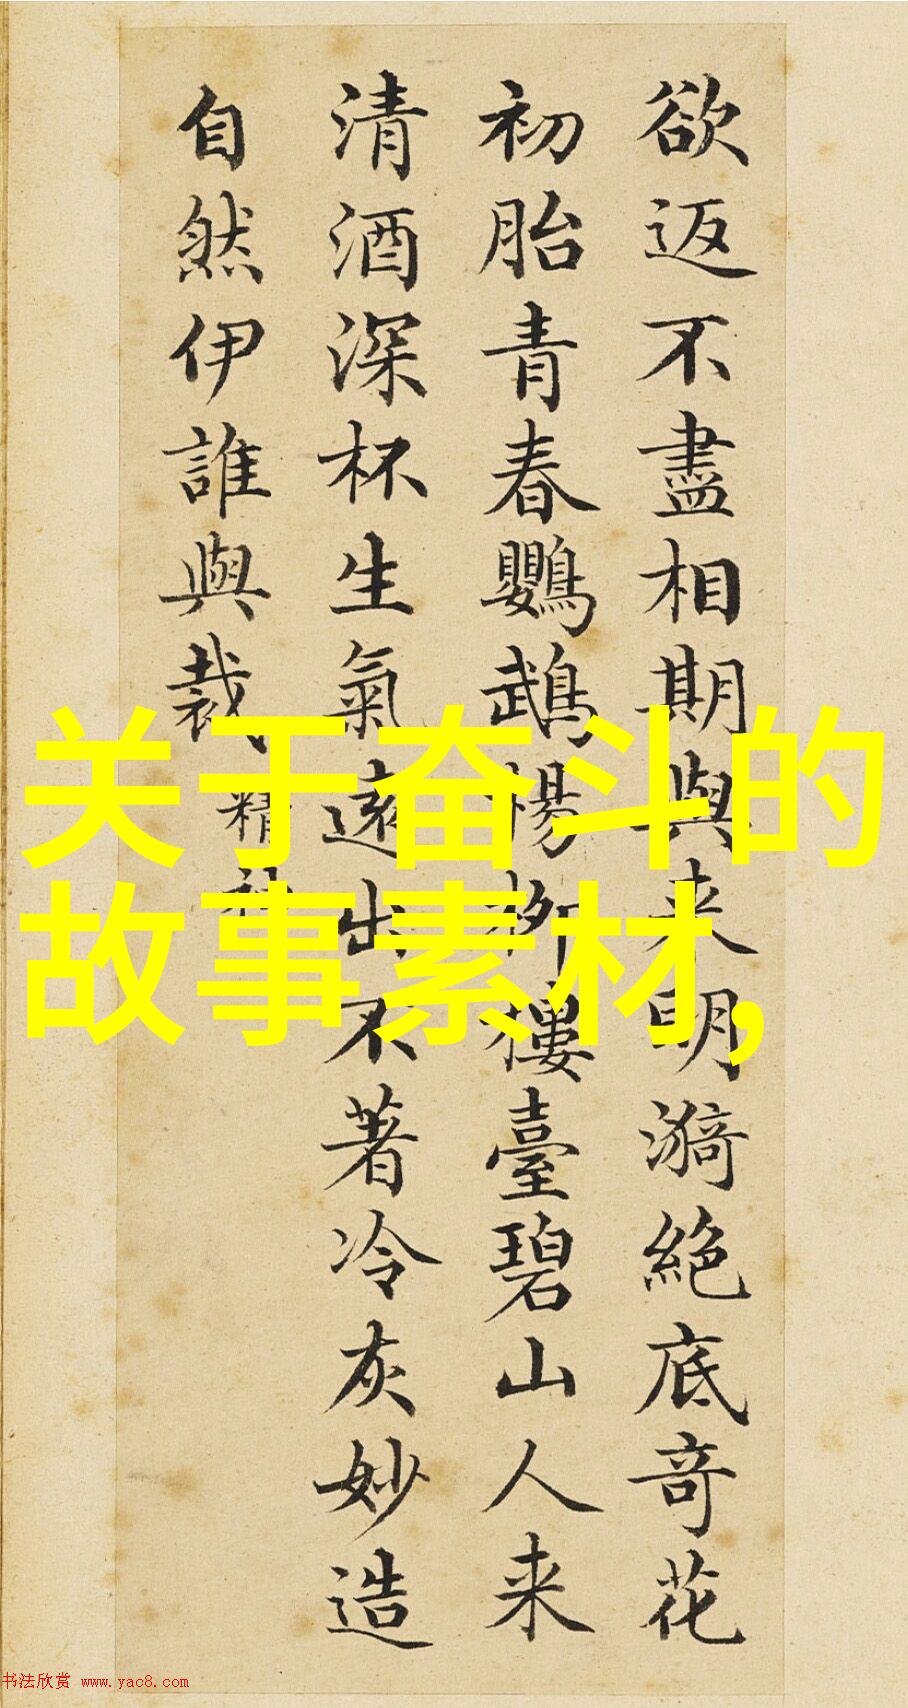 欲返不盡相期與来明漪絕底奇花
初胎青春鸚鵡楊柳樓臺碧山人来
清酒深杯生氣遠出不著冷灰妙造
自然伊誰與裁 精神
关于奋斗的
故事素材,
书法欣赏 www.yac8.com